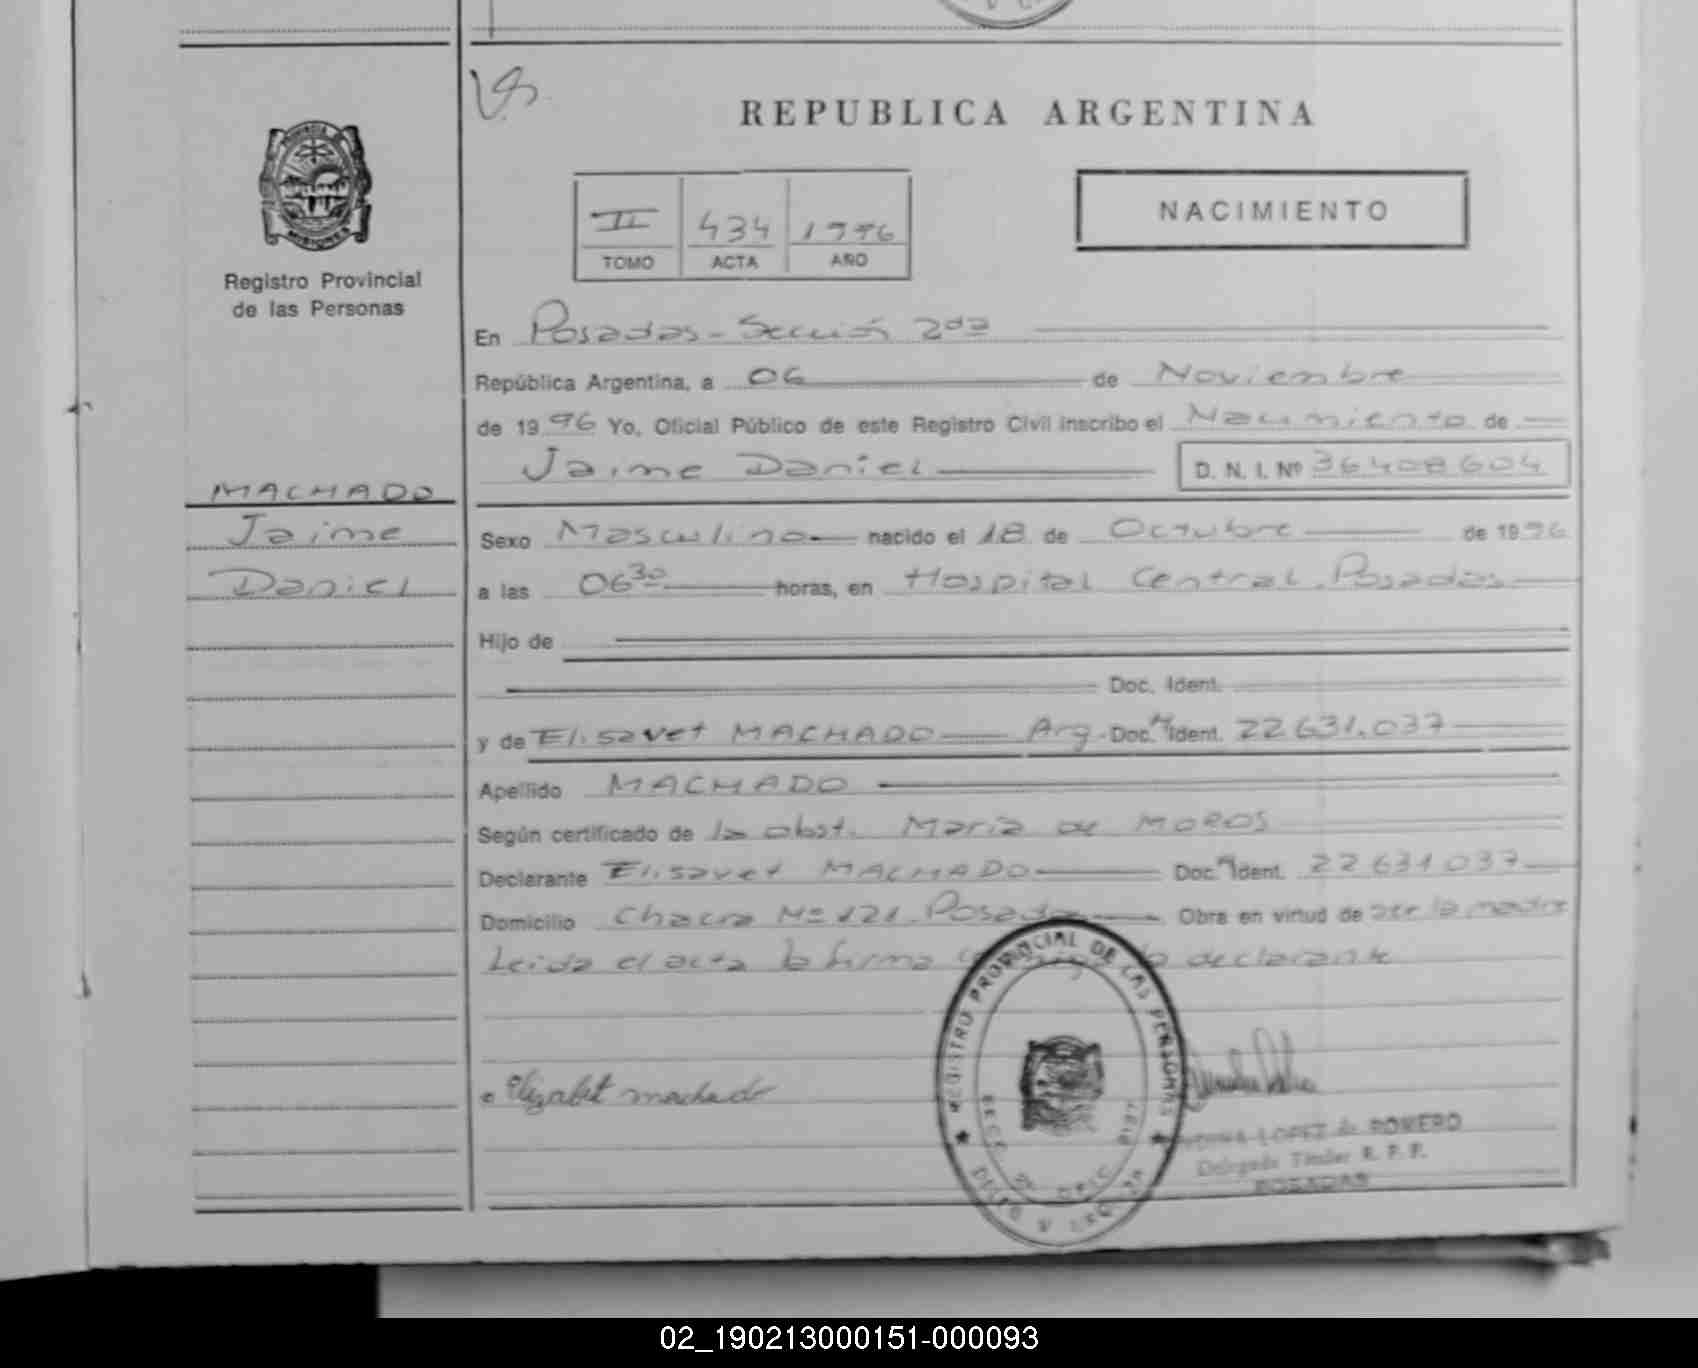 REPUBLICA ARGENTINA
PROVINCIA
MISIONES
Registro Provincial
de las Personas
II 434 1996
TOMO ACTA AÑO
NACIMIENTO
En Posadas - Sección 2da
República Argentina, a 06 de Noviembre
de 1996 Yo, Oficial Público de este Registro Civil inscribo el Nacimiento de
Jaime Daniel D. N. I. Nº 36408604
MACHADO
Jaime
Daniel
Sexo Masculino nacido el 18 de Octubre de 1996
a las 06 30 horas, en Hospital Central. Posadas
Hijo de
Doc. Ident.
y de Elisavet MACHADO Arg. Doc. Ident. 22631.037
Apellido MACHADO
Según certificado de la obst. Maria de MOROS
Declarante Elisavet MACHADO Doc. Ident. 22631037
Domicilio Chacra Nº 121. Posadas Obra en virtud de ser la madre
Leida el acta la firma declarante
Elizabet machado
REGISTRO PROVINCIAL DE LAS PERSONAS
LOPEZ de ROMERO
Delegada Titular R. P. P.
POSADAS
02_190213000151-000093